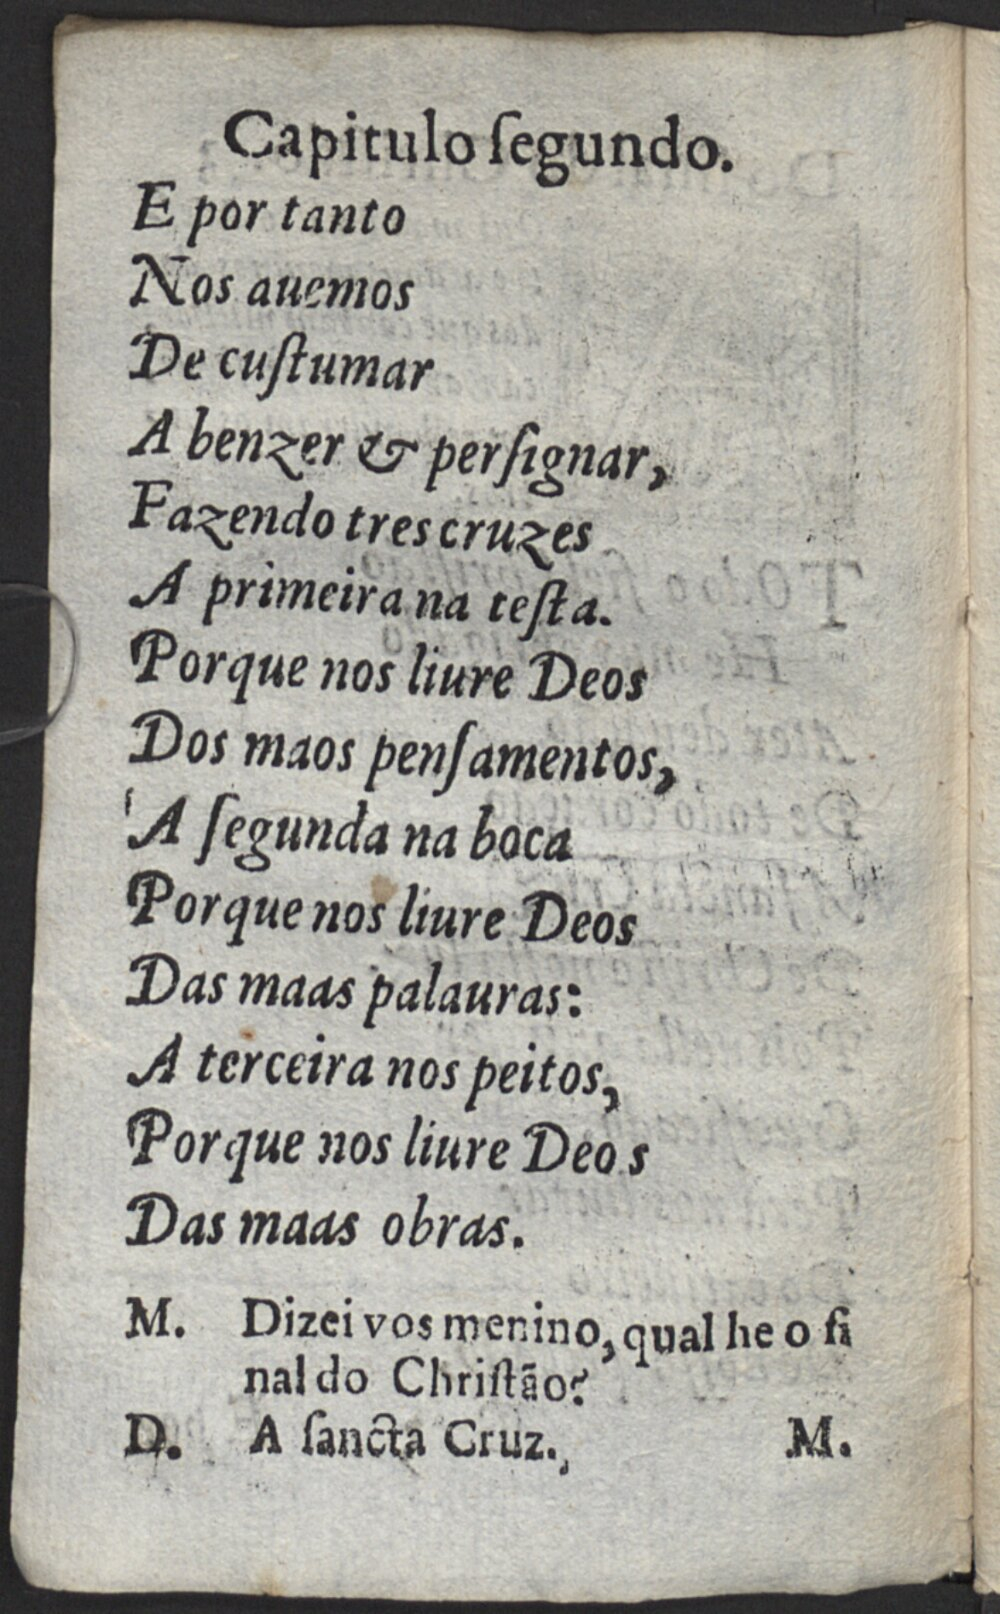 Capitulo ſegundo.
E por tanto
Nos auemos
De cuſtumar
A benzer & perſignar,
Fazendo tres cruzes
A primeira na teſta.
Porque nos liure Deos
Dos maos penſamentos,
A ſegunda na boca
Porque nos liure Deos
Das maas palauras:
A terceira nos peitos,
Porque nos liure Deos
Das maas obras.
M. Dizei vos menino, qual he o ſi
nal do Chriſtão?
D. A ſancta Cruz. M.